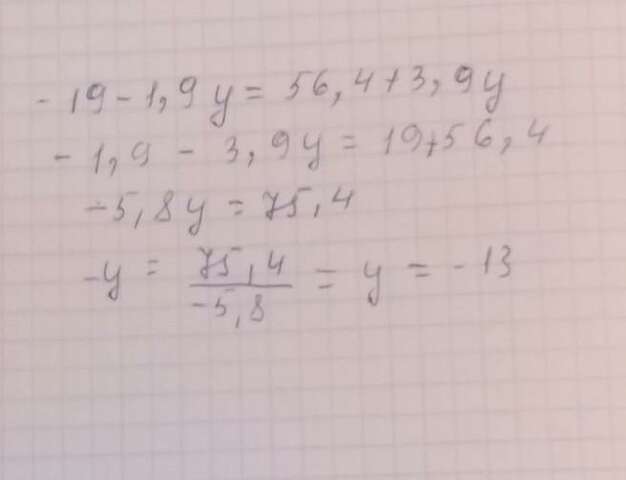 - 19 - 1,9y = 56,4 + 3,9y
- 1,9 - 3,9y = 19 + 56,4
-5,8y = 75,4
-y = 75,4 / -5,8 = y = -13